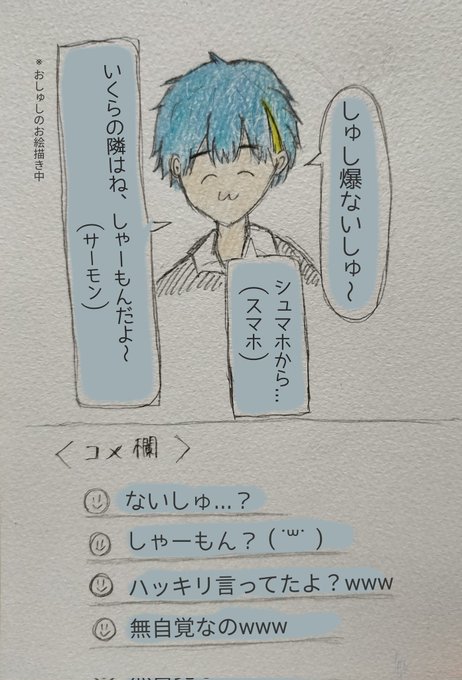 ※おしゅしのお絵描き中
しゅし爆ないしゅ〜
シュマホから…
(スマホ)
いくらの隣はね、しゃーもんだよ〜
(サーモン)
〈コメ欄〉
ないしゅ…？
しゃーもん？( ˙꒳˙ )
ハッキリ言ってたよ？www
無自覚なのwww